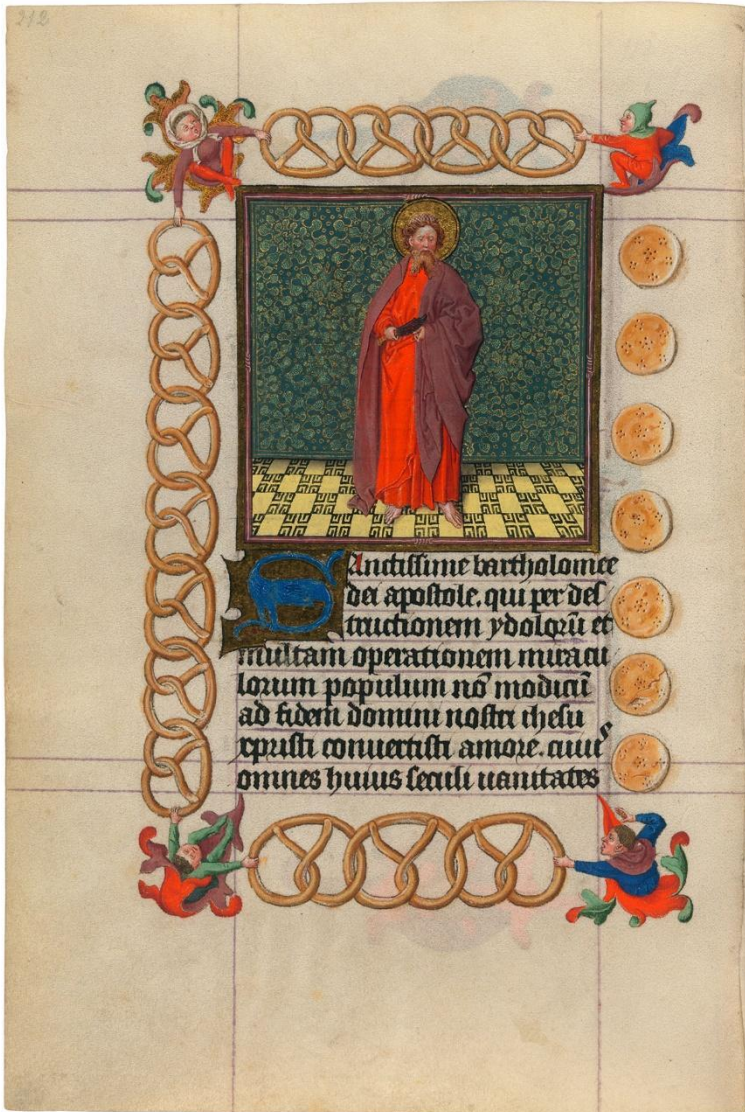 212
Sanctissime bartholomee
dei apostole, qui per des
tructionem ydolorū et
multam operationem miracu
lorum populum nō modicū
ad fidem domini nostri ihesu
xpristi conuertisti amore. cuiꝰ
omnes huius seculi uanitates